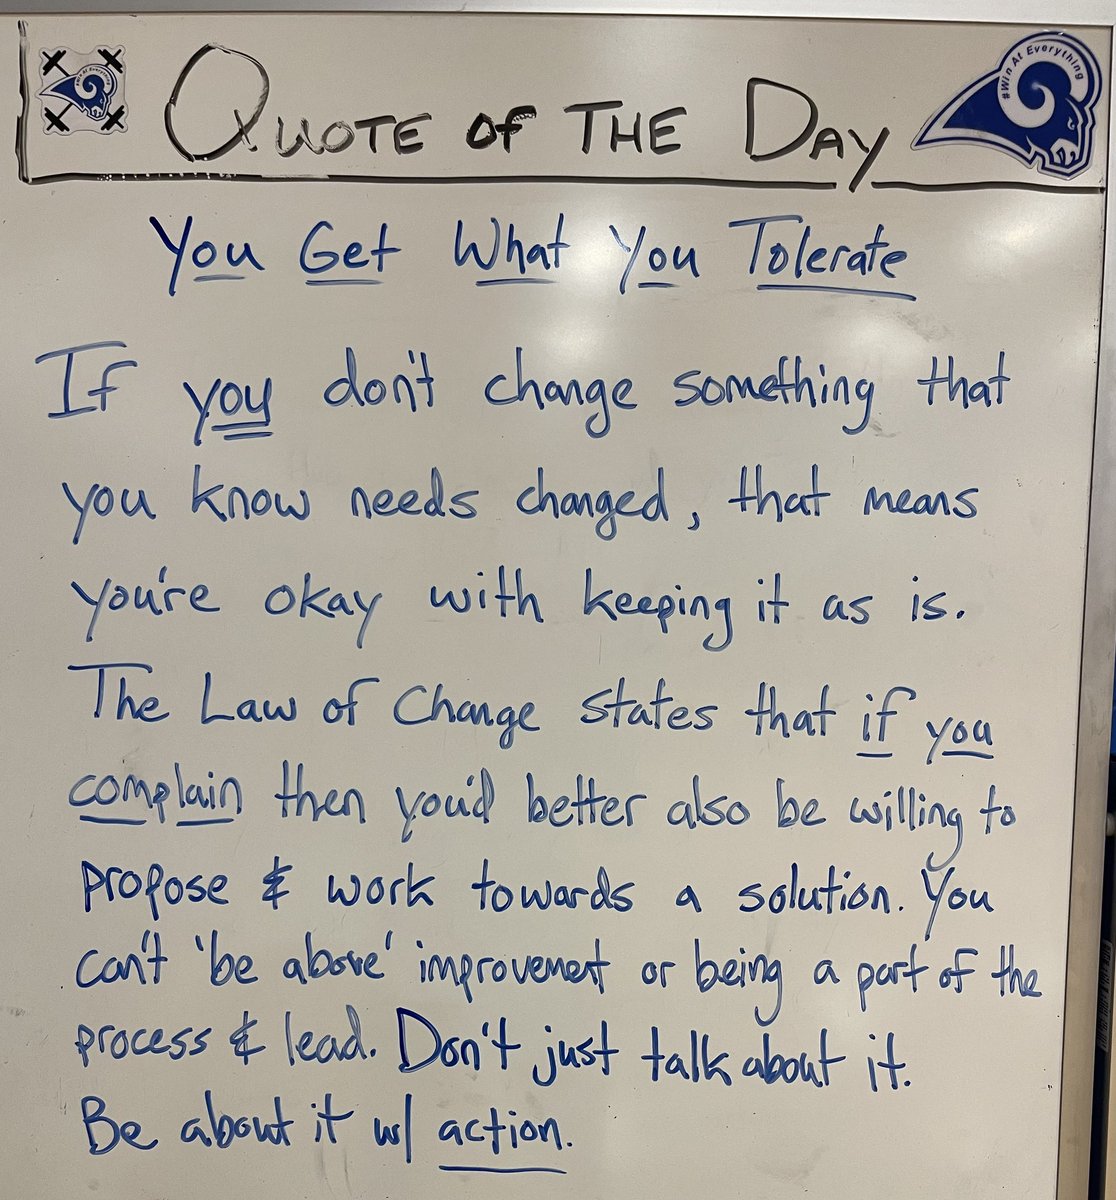 #Win At Everything
QUOTE of THE DAY
#Win At Everything
You Get What You Tolerate
If you don't change something that
you know needs changed, that means
you're okay with keeping it as is.
The Law of Change states that if you
complain then you'd better also be willing to
propose & work towards a solution. You
can't 'be above' improvement or being a part of the
process & lead. Don't just talk about it.
Be about it w/ action.